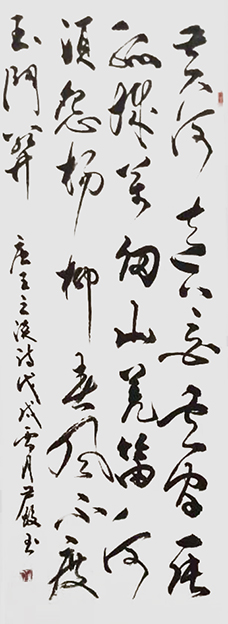 黄河遠上白雲間一片
孤城萬仞山羌笛何
須怨楊柳春風不度
玉門關
唐王之渙詩戊戌雪月嚴玉